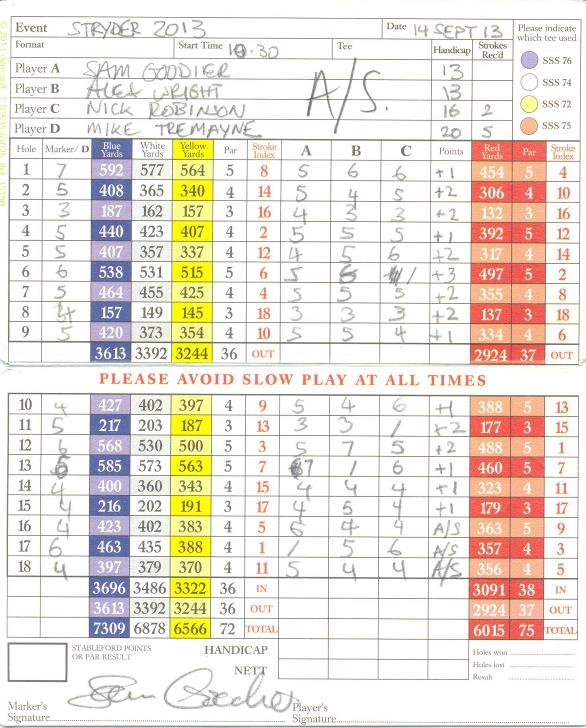 Event STRYDER 2013 Date 14 SEPT 13 Please indicate which tee used
Format Start Time 10.30 Tee Handicap Strokes Rec'd
Player A SAM GOODIER A/S. 13
Player B ALEX WRIGHT 13
Player C NICK ROBINSON 16 2
Player D MIKE TREMAYNE 20 5
SSS 76
SSS 74
SSS 72
SSS 75
Hole Marker/ D Blue Yards White Yards Yellow Yards Par Stroke Index A B C Points Red Yards Par Stroke Index
1 7 592 577 564 5 8 5 6 6 +1 454 5 4
2 5 408 365 340 4 14 5 4 5 +2 306 4 10
3 3 187 162 157 3 16 4 3 3 +2 132 3 16
4 5 440 423 407 4 2 5 5 5 +1 392 5 12
5 5 407 357 337 4 12 4 5 6 +2 317 4 14
6 6 538 531 515 5 6 5 6 / +3 497 5 2
7 5 464 455 425 4 4 5 5 5 +2 355 4 8
8 4 157 149 145 3 18 3 3 3 +2 137 3 18
9 5 420 373 354 4 10 5 5 4 +1 334 4 6
3613 3392 3244 36 OUT 2924 37 OUT
PLEASE AVOID SLOW PLAY AT ALL TIMES
10 4 427 402 397 4 9 5 4 6 +1 388 5 13
11 5 217 203 187 3 13 3 3 / +2 177 3 15
12 6 568 530 500 5 3 5 7 5 +2 488 5 1
13 585 573 563 5 7 7 / 6 +1 460 5 7
14 4 400 360 343 4 15 4 4 4 +1 323 4 11
15 4 216 202 191 3 17 4 5 4 +1 179 3 17
16 4 423 402 383 4 5 6 4 4 A/S 363 5 9
17 6 463 435 388 4 1 / 5 6 A/S 357 4 3
18 4 397 379 370 4 11 5 4 4 A/S 356 4 5
3696 3486 3322 36 IN 3091 38 IN
3613 3392 3244 36 OUT 2924 37 OUT
7309 6878 6566 72 TOTAL 6015 75 TOTAL
STABLEFORD POINTS OR PAR RESULT HANDICAP
NETT
Holes won
Holes lost
Result
Marker's Signature Sam Goodier Player's Signature